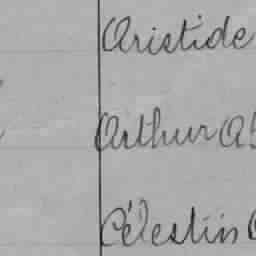 Aristide
Arthur
Célestin